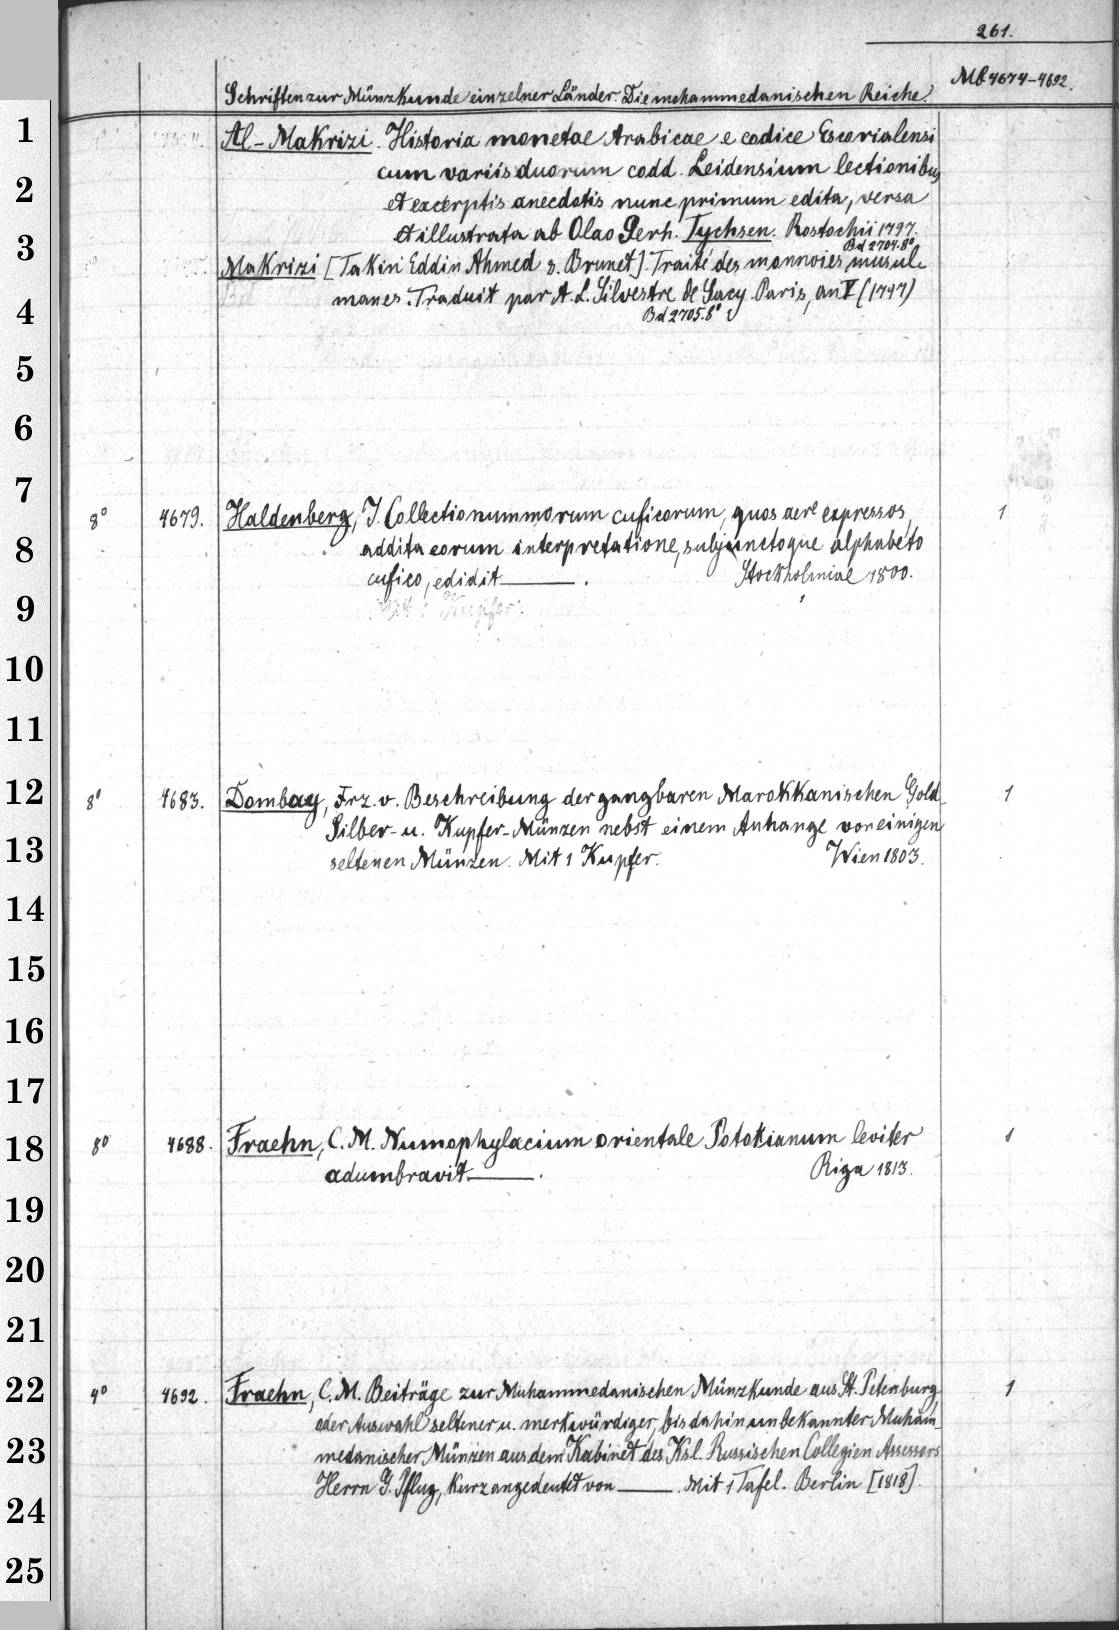 261.
Mb 4674-4692.
Schriften zur Münzkunde einzelner Länder. Die mohammedanischen Reiche.
1
Al-Makrizi. Historia monetae Arabicae e codice Escorialensi
cum variis duorum codd. Leidensium lectionibus
2
et excerptis anecdotis nunc primum edita, versa
et illustrata ab Olao Gerh. Tychsen. Rostochii 1797.
Bd 2704.8°
3
Makrizi [Takin Eddin Ahmed s. Brunet]. Traité des monnoies musul-
manes. Traduit par A. L. Silvestre de Sacy. Paris, an V (1797)
Bd 2705.8°
4
5
6
7
8° 4679. Haldenberg, J. Collectio nummorum cuficorum, quos aere expressos, 1
addita eorum interpretatione, subjunctoque alphabeto
8
cufico, edidit ———. Stockholmiae 1800.
9
Mit 1 Kupfer.
10
11
12
8° 4683. Dombay, Frz. v. Beschreibung der gangbaren Marokkanischen Gold- 1
Silber- u. Kupfer-Münzen nebst einem Anhange von einigen
13
seltenen Münzen. Mit 1 Kupfer. Wien 1803.
14
15
16
17
18
8° 4688. Fraehn, C. M. Numophylacium orientale Pototianum leviter 1
adumbravit ———. Riga 1813.
19
20
21
22
4° 4692. Fraehn, C. M. Beiträge zur Muhammedanischen Münzkunde aus St. Petersburg, 1
oder Auswahl seltener u. merkwürdiger, bis dahin unbekannter Muham-
23
medanischer Münzen aus dem Kabinet des Ksl. Russischen Collegien Assessors
Herrn G. Pflug, kurz angedeutet von ———. Mit 1 Tafel. Berlin [1818].
24
25